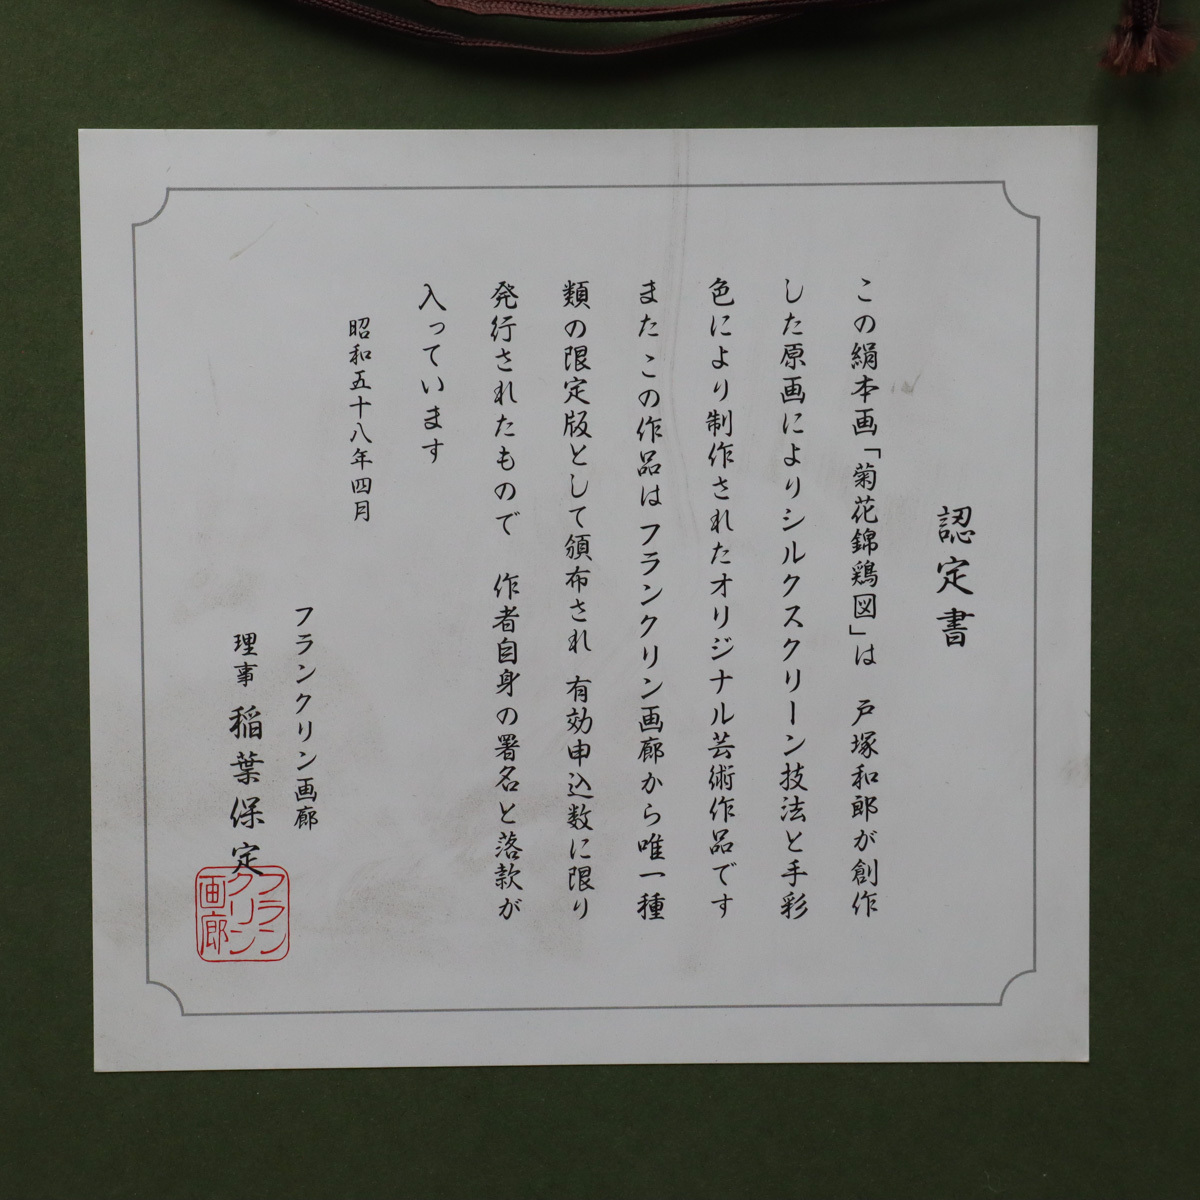 認定書
この絹本画「菊花錦鶏図」は 戸塚和郎が創作
した原画によりシルクスクリーン技法と手彩
色により制作されたオリジナル芸術作品です
また この作品はフランクリン画廊から唯一種
類の限定版として頒布され 有効申込数に限り
発行されたもので 作者自身の署名と落款が
入っています
昭和五十八年四月
フランクリン画廊
理事 稲葉保定
フランクリン画廊